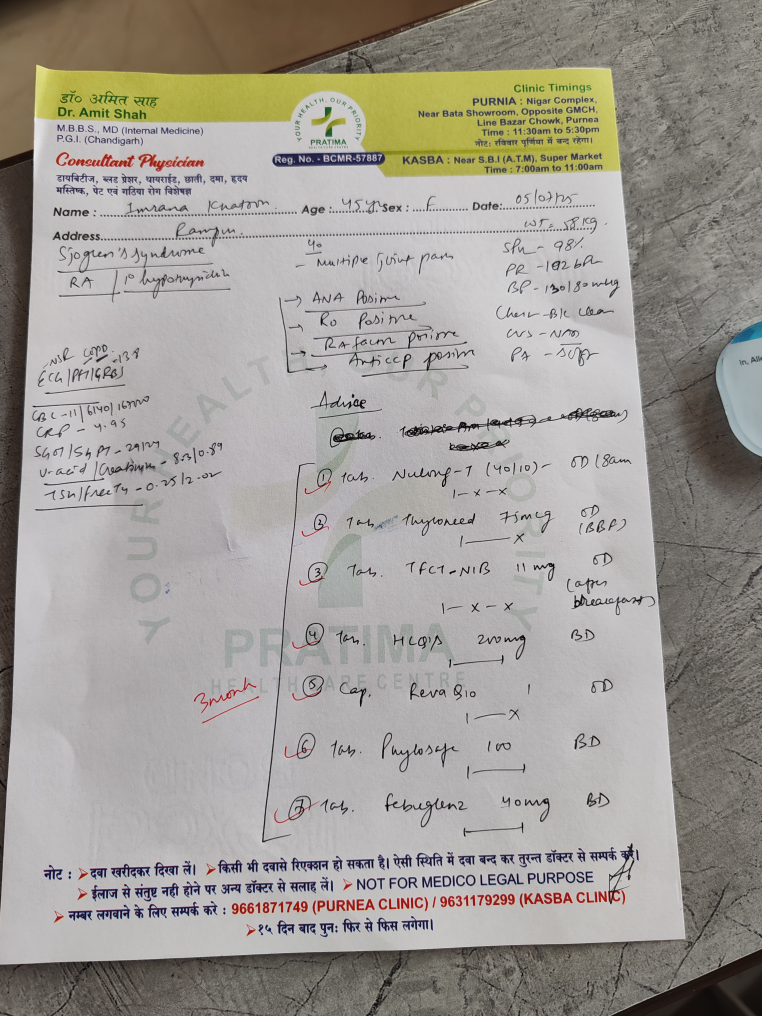 डॉ० अमित साह
Dr. Amit Shah
M.B.B.S., MD (Internal Medicine)
P.G.I. (Chandigarh)
Consultant Physician
डायबिटीज, ब्लड प्रेशर, थायराईड, छाती, दमा, हृदय
मस्तिष्क, पेट एवं गठिया रोग विशेषज्ञ
YOUR HEALTH, OUR PRIORITY
PRATIMA
Reg. No. - BCMR-57887
Clinic Timings
PURNIA : Nigar Complex,
Near Bata Showroom, Opposite GMCH,
Line Bazar Chowk, Purnea
Time : 11:30am to 5:30pm
नोट: रविवार पूर्णिया में बन्द रहेगा।
KASBA : Near S.B.I (A.T.M), Super Market
Time : 7:00am to 11:00am
Name : Imrana Khatoon Age : 45y Sex : F Date: 05/07/25
Address Rampur WT = 58 Kg.
Sjogren's syndrome
RA / 1°
Multiple joint pain
SPO2 - 98%
PR - 102 bpm
BP - 130/80 mmHg
Chest - B/L clear
CVS - NAD
PA - Soft
ANA Positive
Ro Positive
RA factor positive
Anti CCP positive
NSR
138
ECG/PFT/GRBS
CBC - 11/6140/
CRP - 4.95
SGOT/SGPT - 29/27
U-acid/Creatinine - 8.3/0.89
TSH/Free T4 - 0.25/2.02
Advice
① Tab. -T (40/10) - OD (8am
1 - x - x
② Tab. Thyroneed 75mcg OD
(BBF)
1 — x
③ Tab. TFCT-NIB 11 mg OD
(after
breakfast)
1 - x - x
④ Tab. HCQS 200mg BD
1 — 1
3 month
⑤ Cap. Reva Q10 1 OD
1 — x
⑥ Tab. Phylosafe 100 BD
1 — 1
⑦ Tab. 40mg BD
1 — 1
YOUR HEALTH OUR PRIORITY
PRATIMA
HEALTH CARE CENTRE
नोट : ➢दवा खरीदकर दिखा लें। ➢किसी भी दवासे रिएक्शन हो सकता है। ऐसी स्थिति में दवा बन्द कर तुरन्त डॉक्टर से सम्पर्क करें।
➢ईलाज से संतुष्ट नही होने पर अन्य डॉक्टर से सलाह लें। ➢NOT FOR MEDICO LEGAL PURPOSE
➢नम्बर लगवाने के लिए सम्पर्क करे : 9661871749 (PURNEA CLINIC) / 9631179299 (KASBA CLINIC)
➢१५ दिन बाद पुनः फिर से फिस लगेगा।